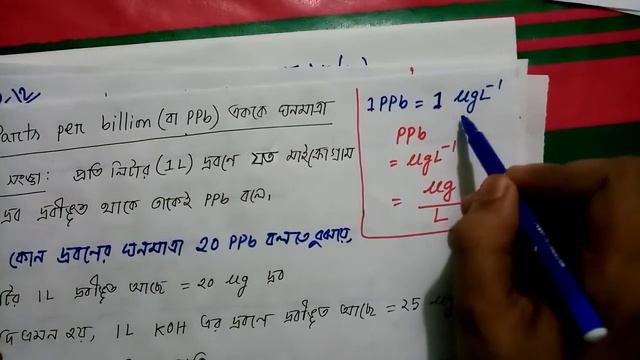 Parts per billion (বা PPb) এককে ঘনমাত্রা
সংজ্ঞা: প্রতি লিটার (1L) দ্রবণে যত মাইক্রোগ্রাম
দ্রব দ্রবীভূত থাকে তাকেই PPb বলে,
কোন দ্রবণের ঘনমাত্রা 20 PPb বলতে বুঝায়,
1L দ্রবীভূত আছে = 20 μg দ্রব
এমন হয়, 1L KOH এর দ্রবণে দ্রবীভূত আছে = 25
1 PPb = 1 μgL⁻¹
PPb
= μgL⁻¹
= μg/L